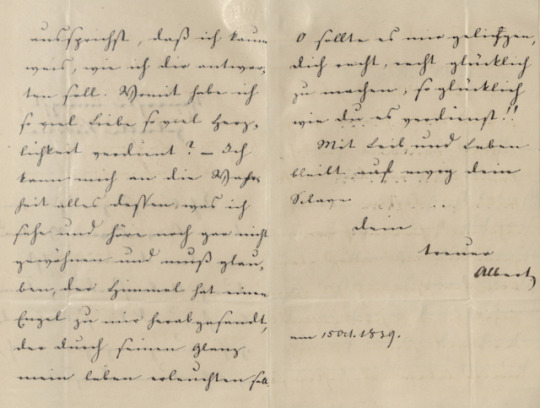 aussprichst, daß ich kaum
weis, wie ich dir antwor,
ten soll. Womit habe ich
so viel Liebe so viel Herz,
lichkeit verdient? – Ich
kann mich an die Wahr,
heit alles dessen, was ich
sehe und höre noch gar nicht
gewöhnen und muß glau,
ben, der Himmel hat einen
Engel zu mir herabgesandt,
der durch seinen Glanz
mein Leben erleuchten soll
O sollte es mir gelingen,
dich recht, recht glücklich
zu machen, so glücklich
wie du es verdienst!!
Mit Leib und Leben
bleibt auf ewig dein
Sclave
dein
treuer
Albert
am 15 Oct. 1839.